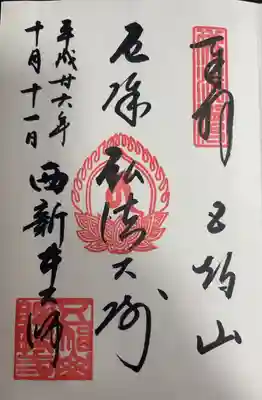 奉拝
五智山
厄除 弘法大師
西新井大師
平成廿六年
十月十一日